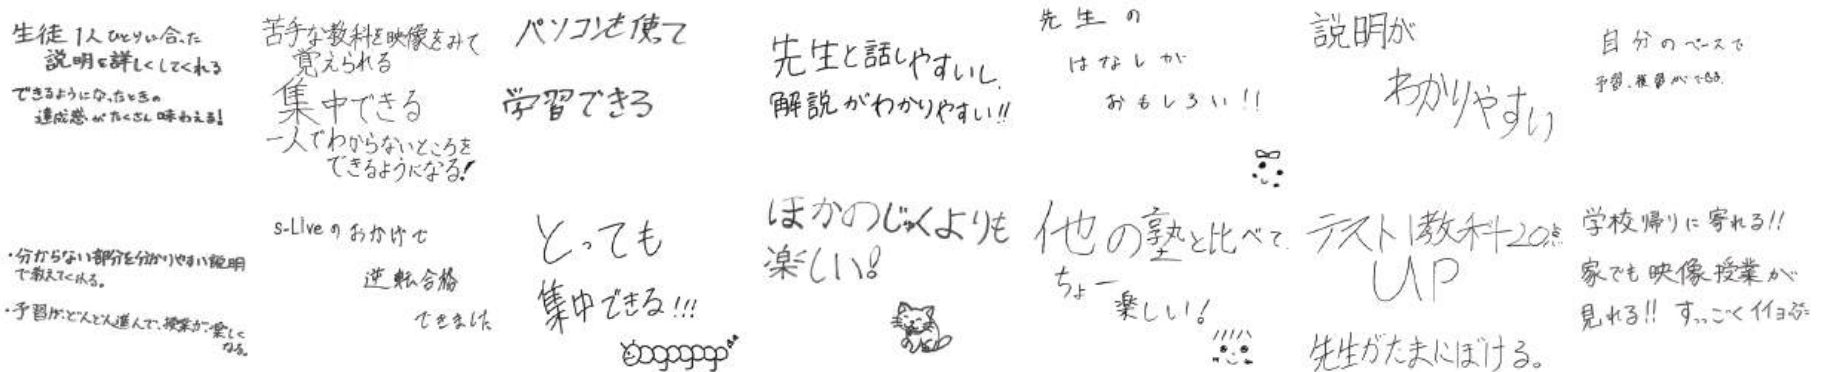 生徒1人ひとりに合った
説明を詳しくしてくれる
できるようになったときの
達成感がたくさん味わえる!
苦手な教科を映像をみて
覚えられる
集中できる
一人でわからないところを
できるようになる!
パソコンを使って
学習できる
先生と話しやすいし、
解説がわかりやすい!!
先生の
はなしが
おもしろい!!
説明が
わかりやすい
自分のペースで
予習、復習ができる。
・分からない部分を分かりやすい説明
で教えてくれる。
・予習がどんどん進んで、授業が楽しく
なる。
s-Liveのおかげで
逆転合格
できました
とっても
集中できる!!!
ほかのじゅくよりも
楽しい!
他の塾と比べて
ちょー
楽しい!
テスト1教科20点
UP
先生がたまにぼける。
学校帰りに寄れる!!
家でも映像授業が
見れる!! すっごくイイ